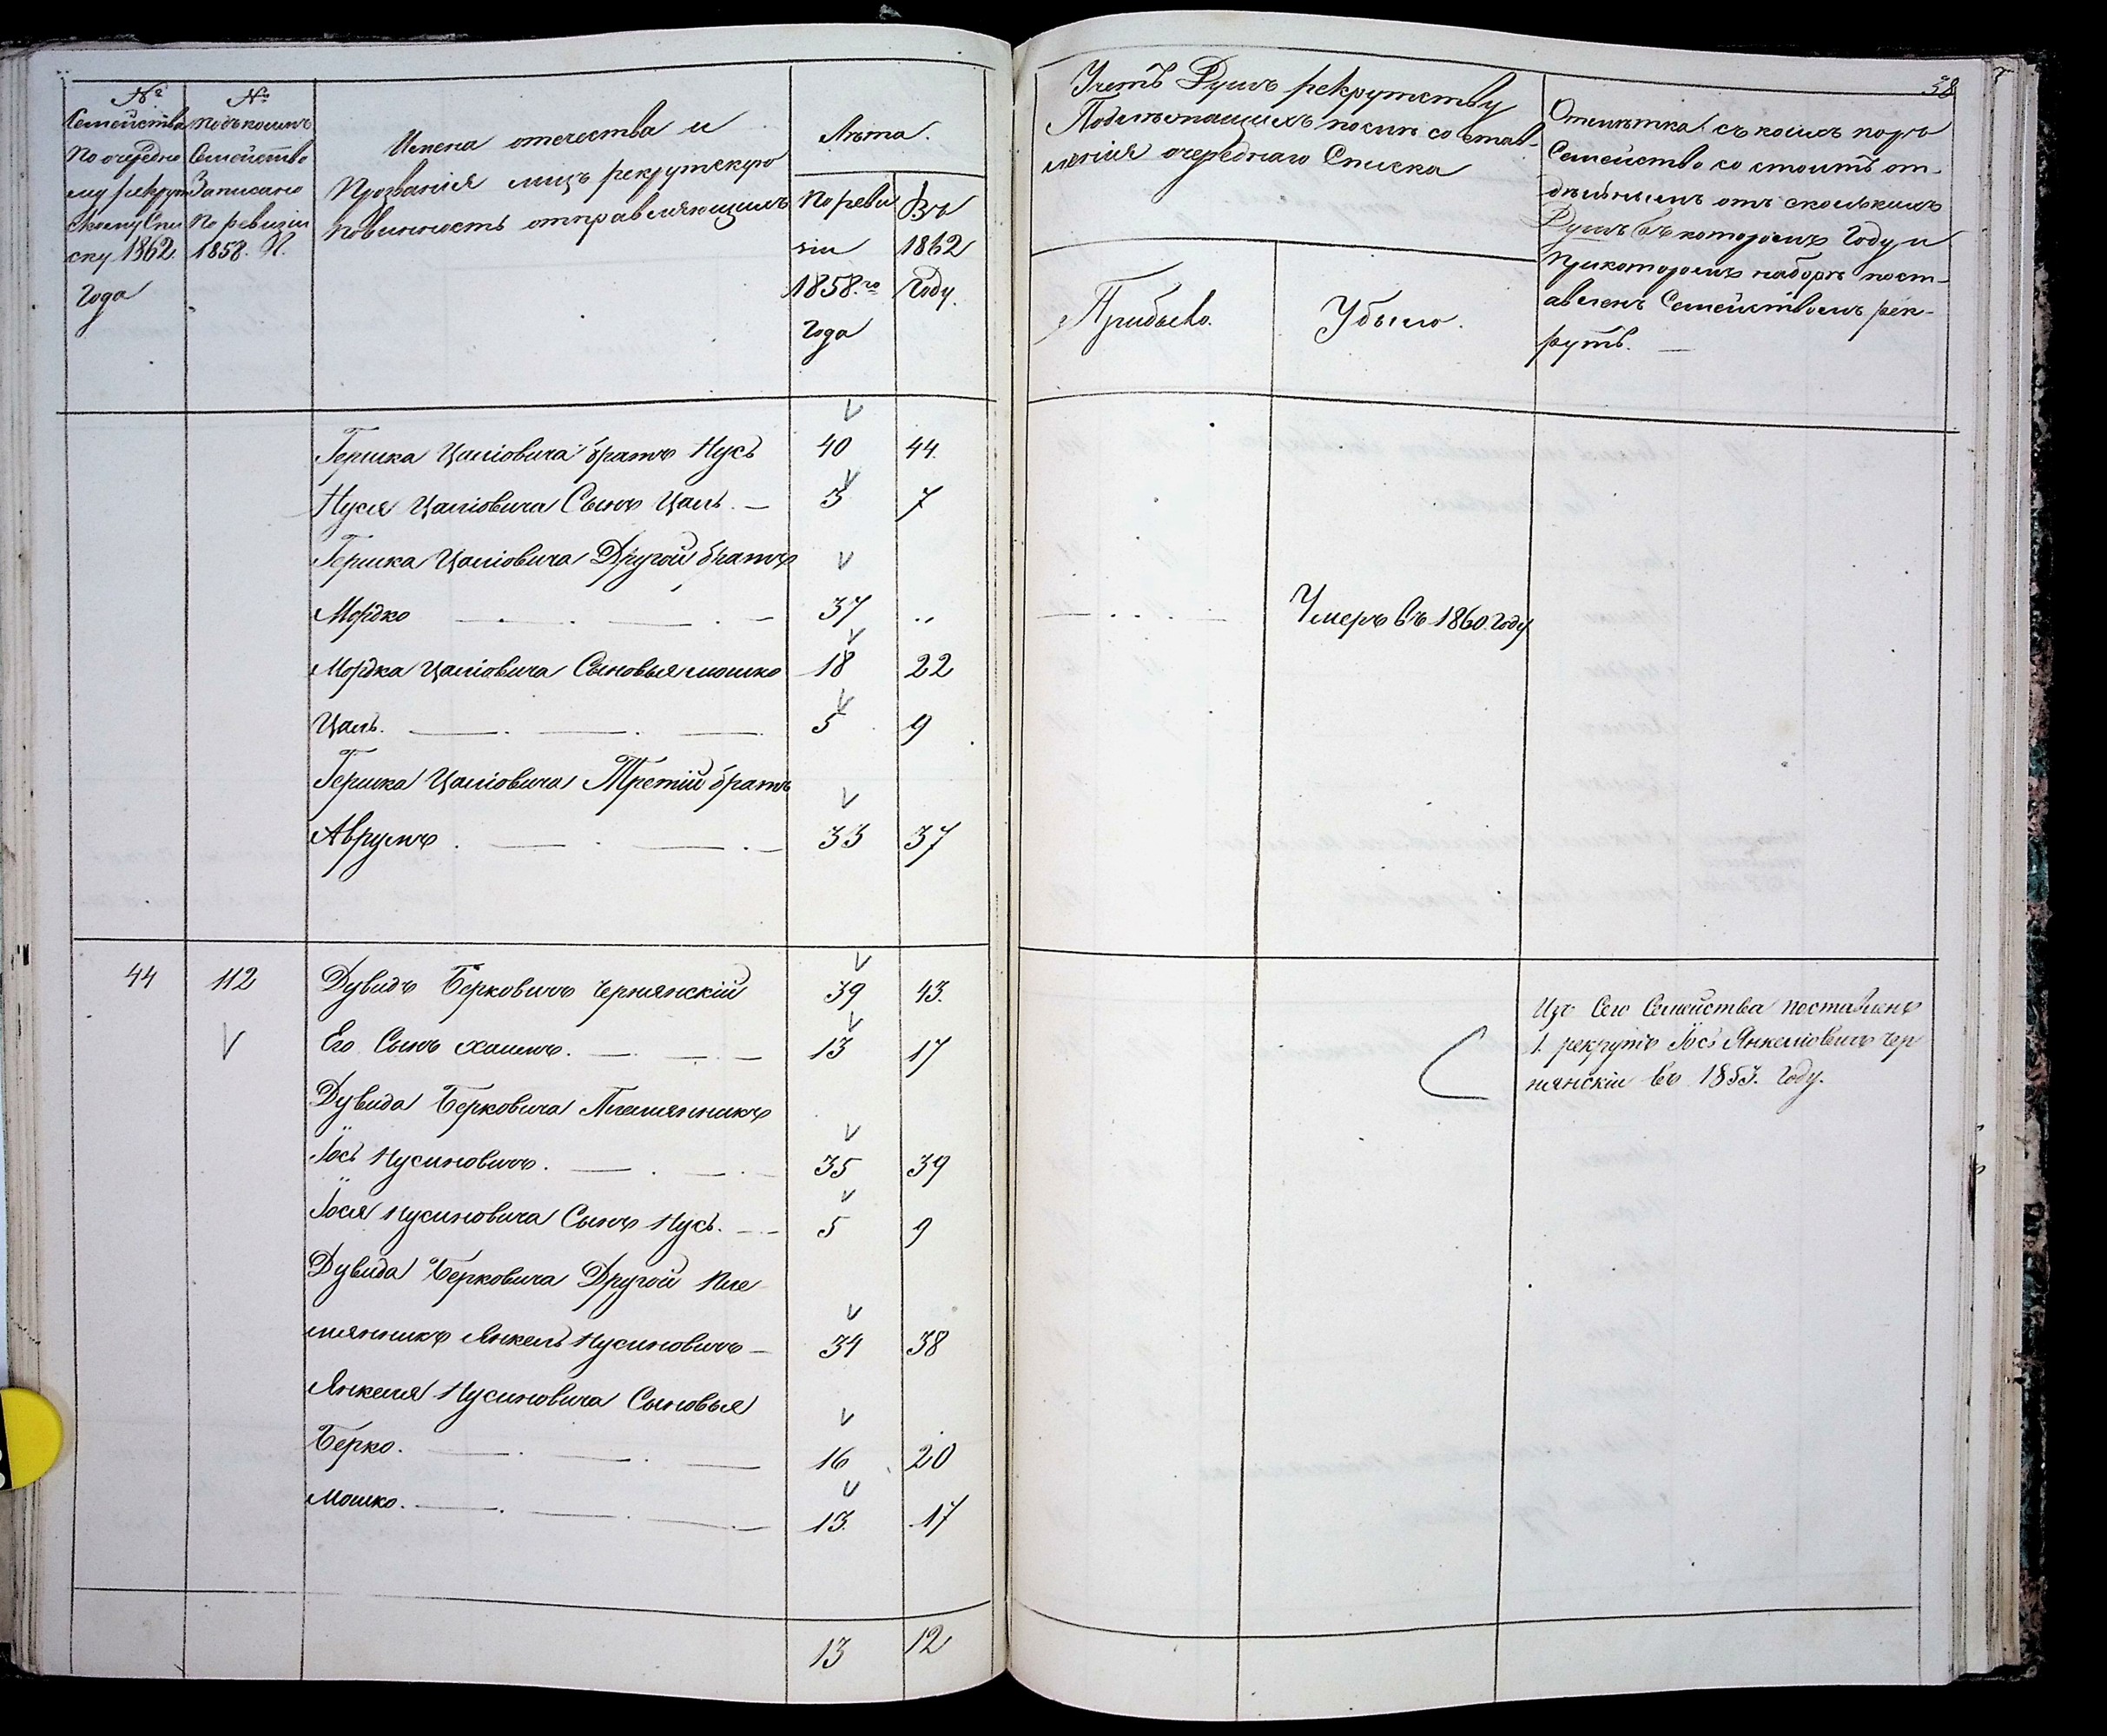 №
Семейства
По очередно
му рекрут
скому Спи
ску 1862.
Года
№
подъ коимъ
Семейство
Записано
По ревизіи
1858. Г.
Имена отечества и
Прозванія лицъ рекрутскую
повинность отправляющихъ
Лѣта.
По реви
зіи
1858.го
Года
Въ
1862
Году.
38
Учетъ Душъ рекрутству
Подлежащихъ послѣ состав-
ленія очереднаго Списка
Прибыло.
Убыло.
Отмѣтка съ коихъ поръ
Семейство состоитъ от-
дѣльнымъ отъ сколькихъ
Душъ въ которомъ Году и
при которомъ наборѣ пост-
авленъ Семействомъ рек-
рутъ. —
Гершка Цаліовича братъ Нусь 40 44.
Нуся Цаліовича Сынъ Цаль. — 3 7
Гершка Цаліовича Другой братъ
Мордко 37 .. Умеръ въ 1860. Году
Мордка Цаліовича Сыновья мошко 18 22
Цаль. 5 9
Гершка Цаліовича Третій братъ
Аврумъ. 33 37
44 112 Дувидъ Берковичъ Чернянскій 39 43.
Его Сынъ Хаимъ. 13 17
Дувида Берковича Племянникъ
Іось Нусиновичъ. 35 39
Іося Нусиновича Сынъ Нусь. 5 9
Дувида Берковича Другой Пле
мянникъ Янкель Нусиновичъ — 34 38
Янкеля Нусиновича Сыновья
Берко. 16 20
Мошко. 13. 17
Изъ Сего Семейства поставленъ
1. рекрутъ Іось Янкеліовичъ Чер
нянскій въ 1853. Году.
13 12